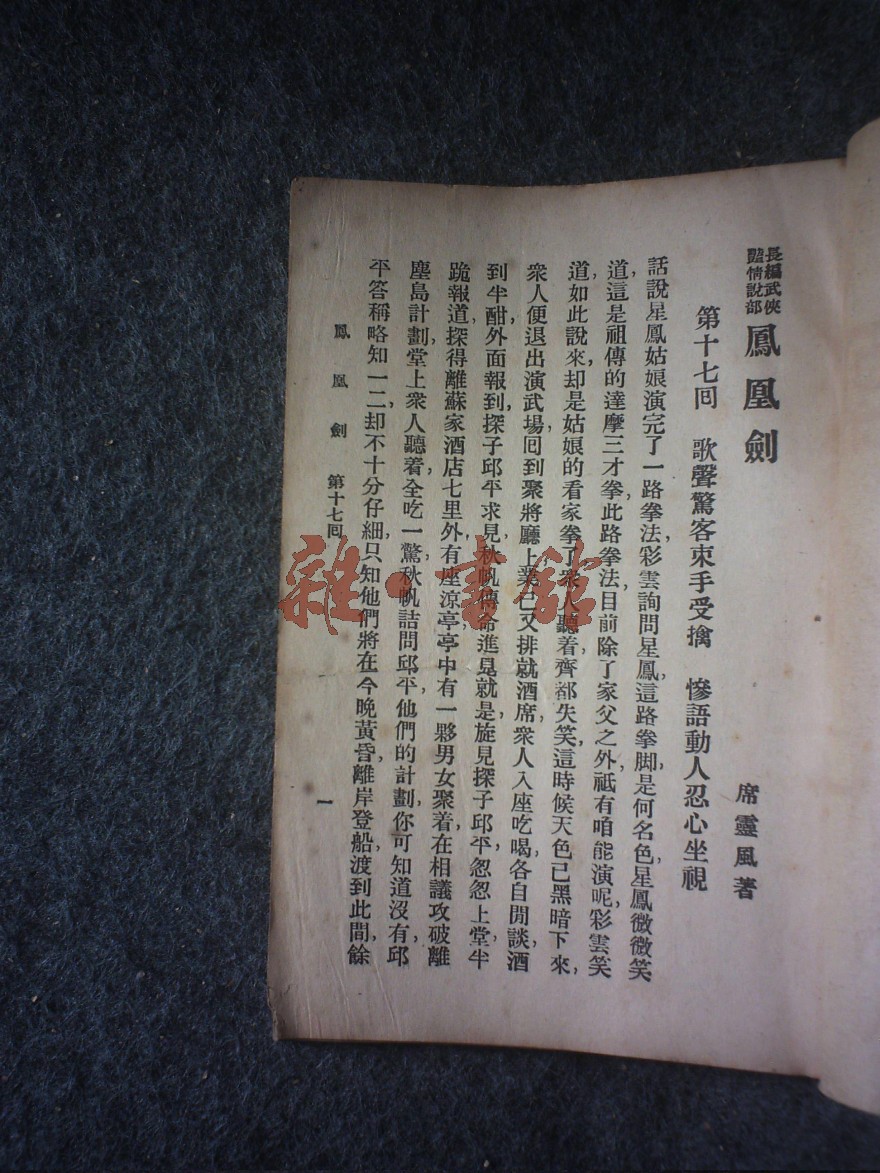 長編武俠
豔情說部
鳳凰劍
席靈風著
第十七回　歌聲驚客束手受擒　慘語動人忍心坐視
話說星鳳姑娘演完了一路拳法，彩雲詢問星鳳，這路拳脚，是何名色，星鳳微微笑
道，這是祖傳的達摩三才拳，此路拳法，目前除了家父之外，祗有咱能演呢，彩雲笑
道，如此說來，却是姑娘的看家拳了，衆人聽着，齊都失笑，這時候天色已黑暗下來，
衆人便退出演武場，回到聚將廳上，業已又排就酒席，衆人入座吃喝，各自閒談，酒
到半酣，外面報到，探子邱平求見，秋帆傳命進見，就是旋見探子邱平，怱怱上堂，半
跪報道，探得離蘇家酒店七里外，有座涼亭，亭中有一夥男女聚着，在相議攻破離
塵島計劃，堂上衆人聽着，全吃一驚，秋帆詰問邱平，他們的計劃，你可知道沒有，邱
平答稱略知一二，却不十分仔細，只知他們將在今晚黃昏，離岸登船，渡到此間，餘
鳳凰劍　第十七回
一
雜·書館